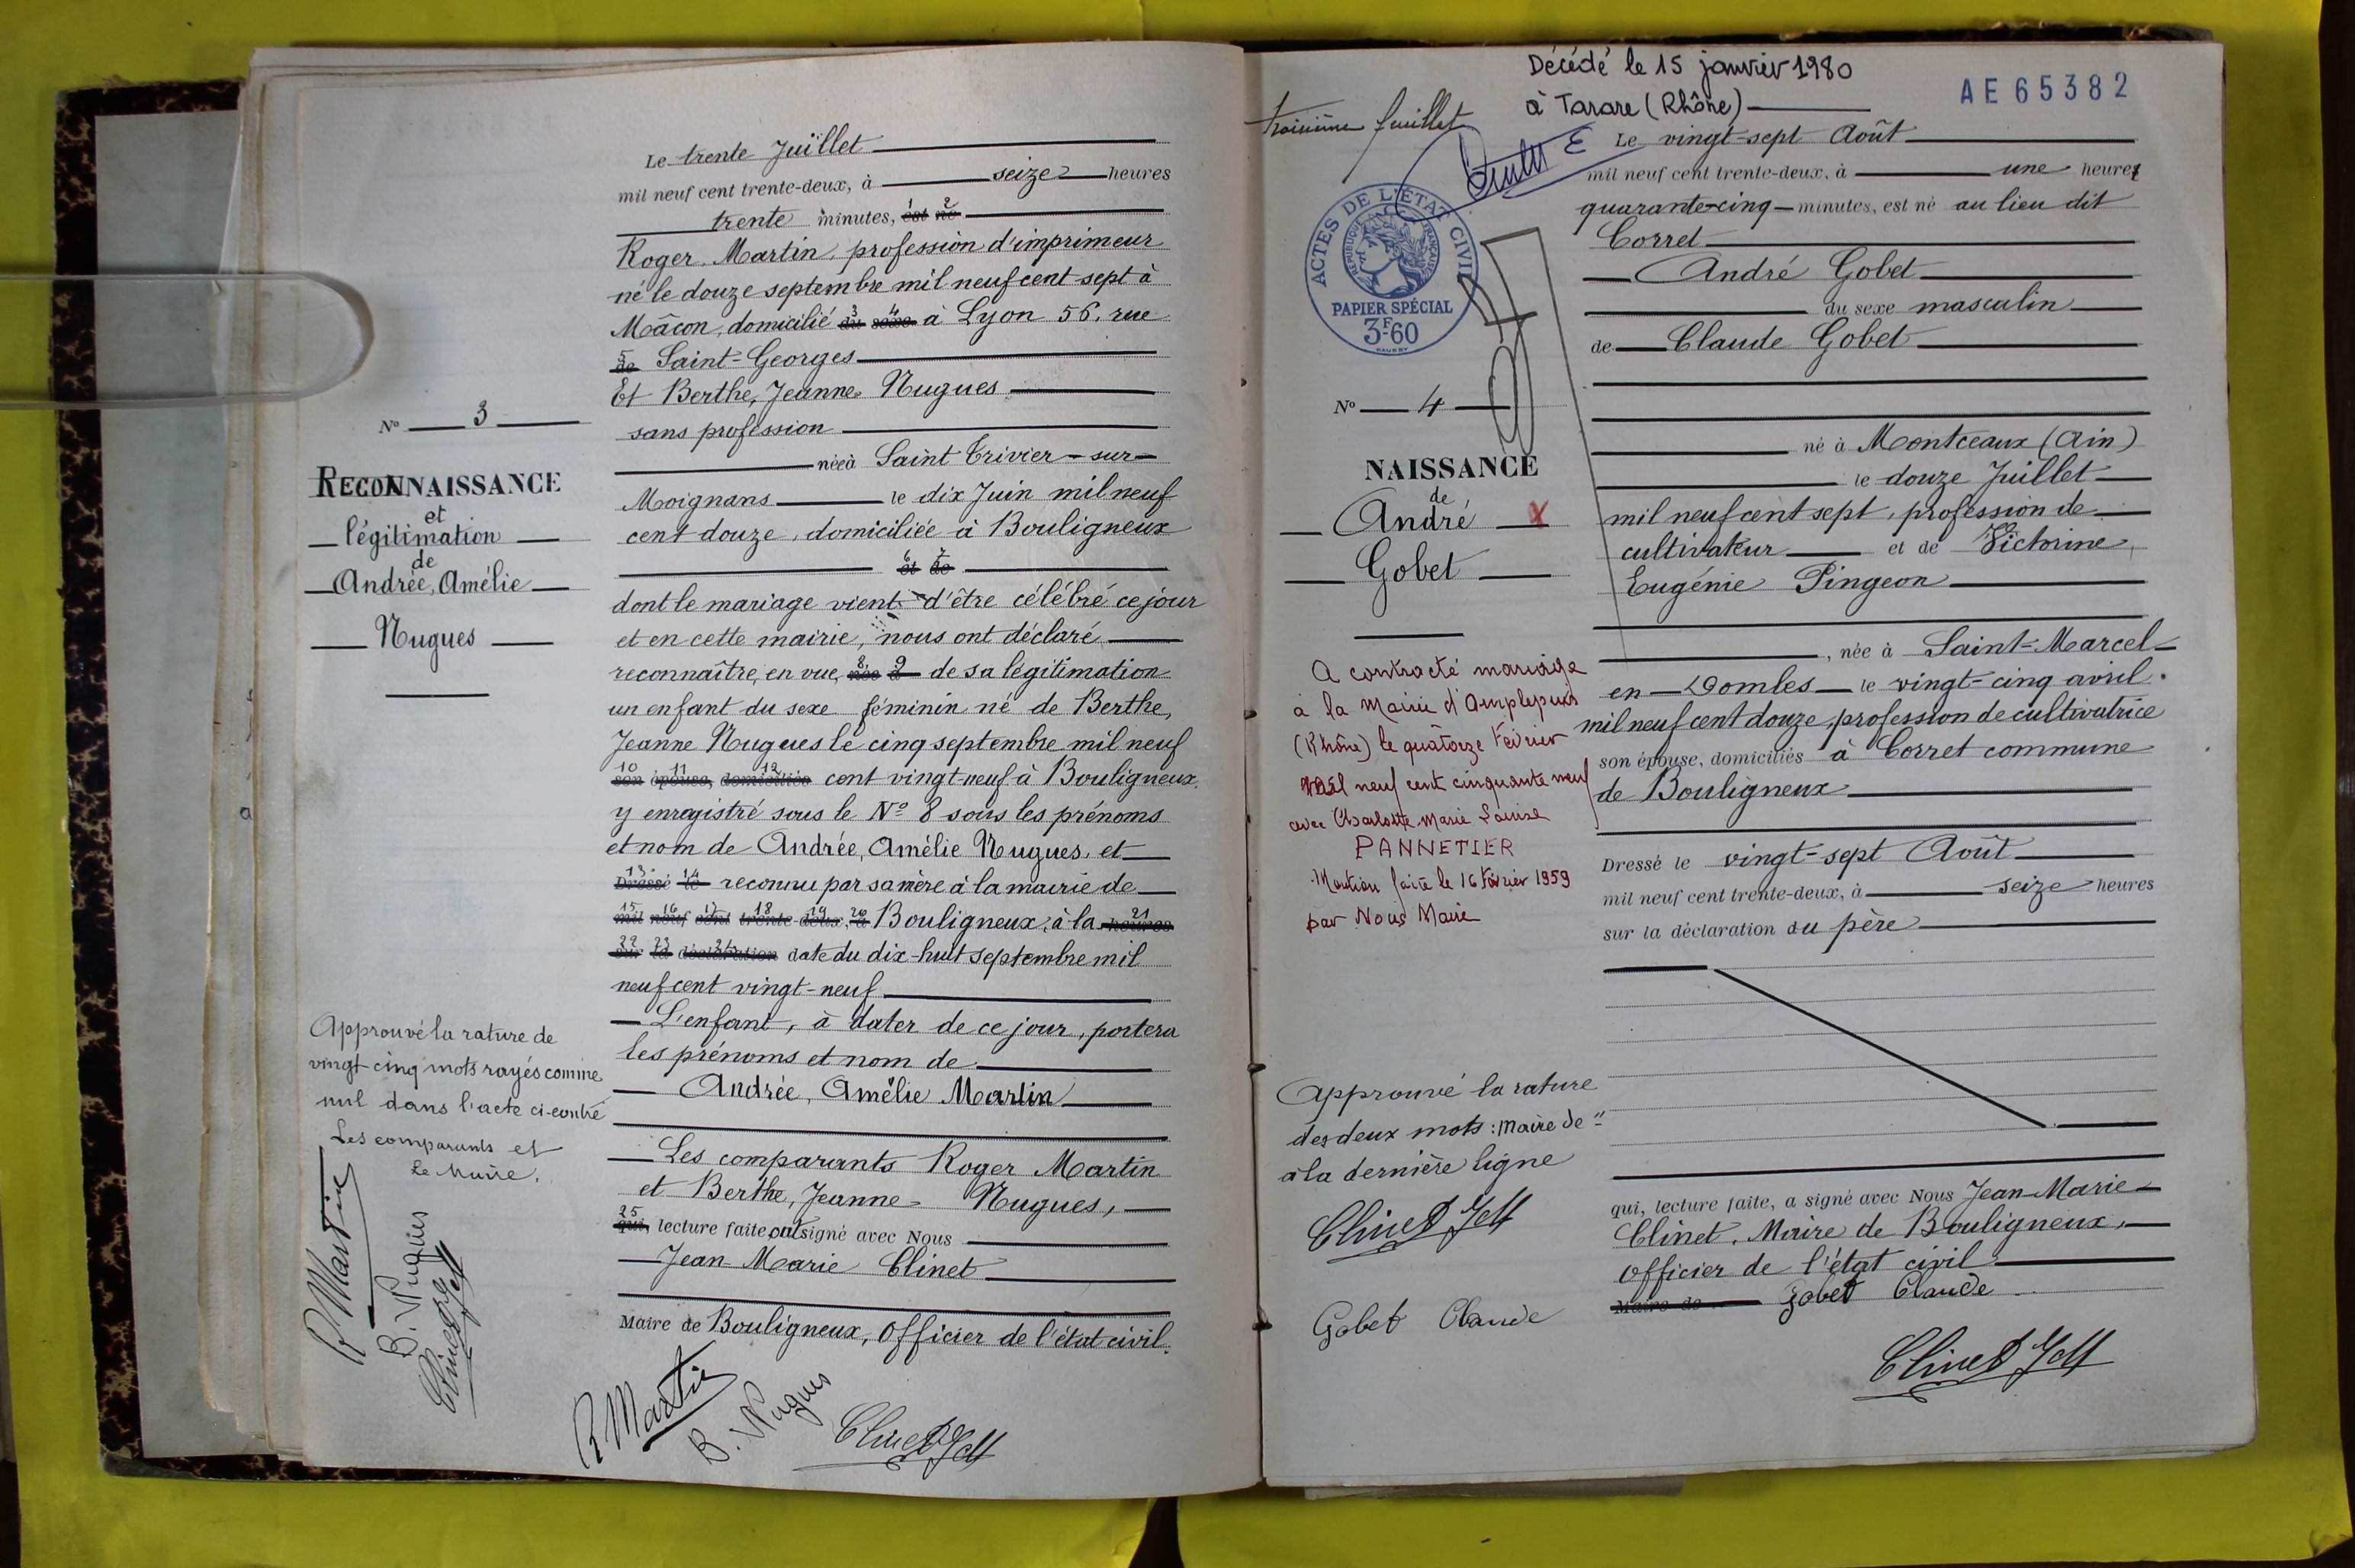 Le trente Juillet
mil neuf cent trente-deux, à seize heures
trente minutes, est né
Roger Martin, profession d'imprimeur
né le douze septembre mil neuf cent sept à
Mâcon, domicilié du sexe à Lyon 56, rue
de Saint-Georges
Et Berthe, Jeanne Nugues
sans profession
née à Saint Trivier-sur-
Moignans le dix Juin mil neuf
cent douze, domiciliée à Bouligneux
et de
dont le mariage vient d'être célébré ce jour
et en cette mairie, nous ont déclaré
reconnaître, en vue, née à de sa légitimation
un enfant du sexe féminin né de Berthe,
Jeanne Nugues le cinq septembre mil neuf
son épouse, domiciliés cent vingt-neuf à Bouligneux,
y enregistré sous le No 8 sous les prénoms
et nom de Andrée, Amélie Nugues, et
Dressé le reconnu par sa mère à la mairie de
mil neuf cent trente-deux, à Bouligneux, à la heures
sur la déclaration date du dix-huit septembre mil
neuf cent vingt-neuf
L'enfant, à dater de ce jour, portera
les prénoms et nom de
Andrée, Amélie Martin
Les comparants Roger Martin
et Berthe, Jeanne Nugues,
qui, lecture faite ont signé avec Nous
Jean-Marie Clinet
Maire de Bouligneux, Officier de l'état civil.
R Martin
B. Nugues
Clinet JM
No 3
RECONNAISSANCE
et
légitimation
de
Andrée, Amélie
Nugues
Approuvé la rature de
vingt cinq mots rayés comme
nul dans l'acte ci-contre
Les comparants et
Le Maire.
R Martin
B. Nugues
Clinet JM
Décédé le 15 janvier 1980
à Tarare (Rhône)
AE65382
troisième feuillet
ACTES DE L'ÉTAT CIVIL
RÉPUBLIQUE FRANÇAISE
PAPIER SPÉCIAL
3F60
No 4
NAISSANCE
de
André X
Gobet
A contracté mariage
à la Mairie d'Amplepuis
(Rhône) le quatorze Février
Mil neuf cent cinquante neuf
avec Charlotte Marie Louise
PANNETIER
Mention faite le 16 Février 1959
par Nous Maire
Approuvé la rature
des deux mots : Maire de "
à la dernière ligne
Clinet JM
Gobet Claude
Le vingt-sept Août
mil neuf cent trente-deux, à une heures
quarante-cinq minutes, est né au lieu dit
Corret
André Gobet
du sexe masculin
de Claude Gobet
né à Montceaux (Ain)
le douze Juillet
mil neuf cent sept, profession de
cultivateur et de Victorine,
Eugénie Pingeon
, née à Saint-Marcel-
en-Dombes le vingt-cinq avril
mil neuf cent douze, profession de cultivatrice
son épouse, domiciliés à Corret commune
de Bouligneux
Dressé le vingt-sept Août
mil neuf cent trente-deux, à seize heures
sur la déclaration du père
qui, lecture faite, a signé avec Nous Jean-Marie
Clinet, Maire de Bouligneux,
Officier de l'état civil
Maire de Gobet Claude
Clinet JM